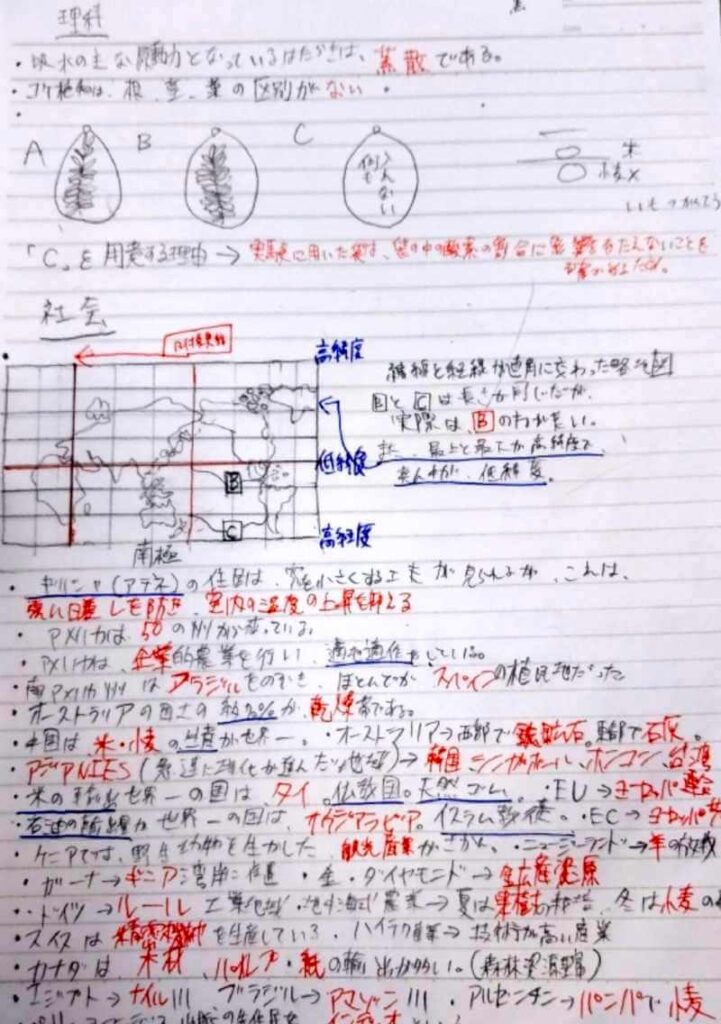 理科
・吸水の主な原動力となっているはたらきは、蒸散である。
・コケ植物は、根、茎、葉の区別がない。
A B C
何も入んない
米
小麦×
「C」を用意する理由→実験に用いた袋は、袋の中の酸素の割合に影響をあたえないことを
社会
高緯度
緯線と経線が直角に交わった略地図
BとCは長さが同じだが、
実際は、Bの方が長い。
低緯度
また、最上と最下が高緯度で、
真ん中が、低緯度。
B
C
高緯度
南極
・ギリシャ(アテネ)の住居は、窓を小さくする工夫が見られるが、これは、
強い日差しを防ぎ、室内の温度の上昇を抑える
・アメリカは50の州から成っている。
・アメリカは、企業的農業を行い、適地適作をしている。
・南アメリカ州はブラジルをのぞき、ほとんどがスペインの植民地だった
・オーストラリアの国土の約70%が、乾燥帯である。
・中国は米・小麦の生産が世界一。・オーストラリア→西部で鉄鉱石。東部で石炭。
・アジアNIES(急速に進化が進んだ地域)→韓国シンガポール、ホンコン、台湾
・米の輸出世界一の国は、タイ。仏教国。天然ゴム。・EU→ヨーロッパ連合
・石油の輸出が世界一の国は、サウジアラビア。イスラム教徒。・EC→ヨーロッパ
・ケニアでは、野生動物を生かした、観光産業がさかん。・ニュージーランド→羊の放牧
・ガーナ→ギニア湾岸に位置 ・金・ダイヤモンド→鉱産資源
・ドイツ→ルール工業地域・地中海式農業→夏は果樹を栽培、冬は小麦の
・スイスは精密機械を生産している・ハイテク産業→技術が高い産業
・カナダは木材、パルプ・紙の輸出が多い。(森林資源豊富)
・エジプト→ナイル川 ブラジル→アマゾン川 ・アルゼンチン→パンパで小麦